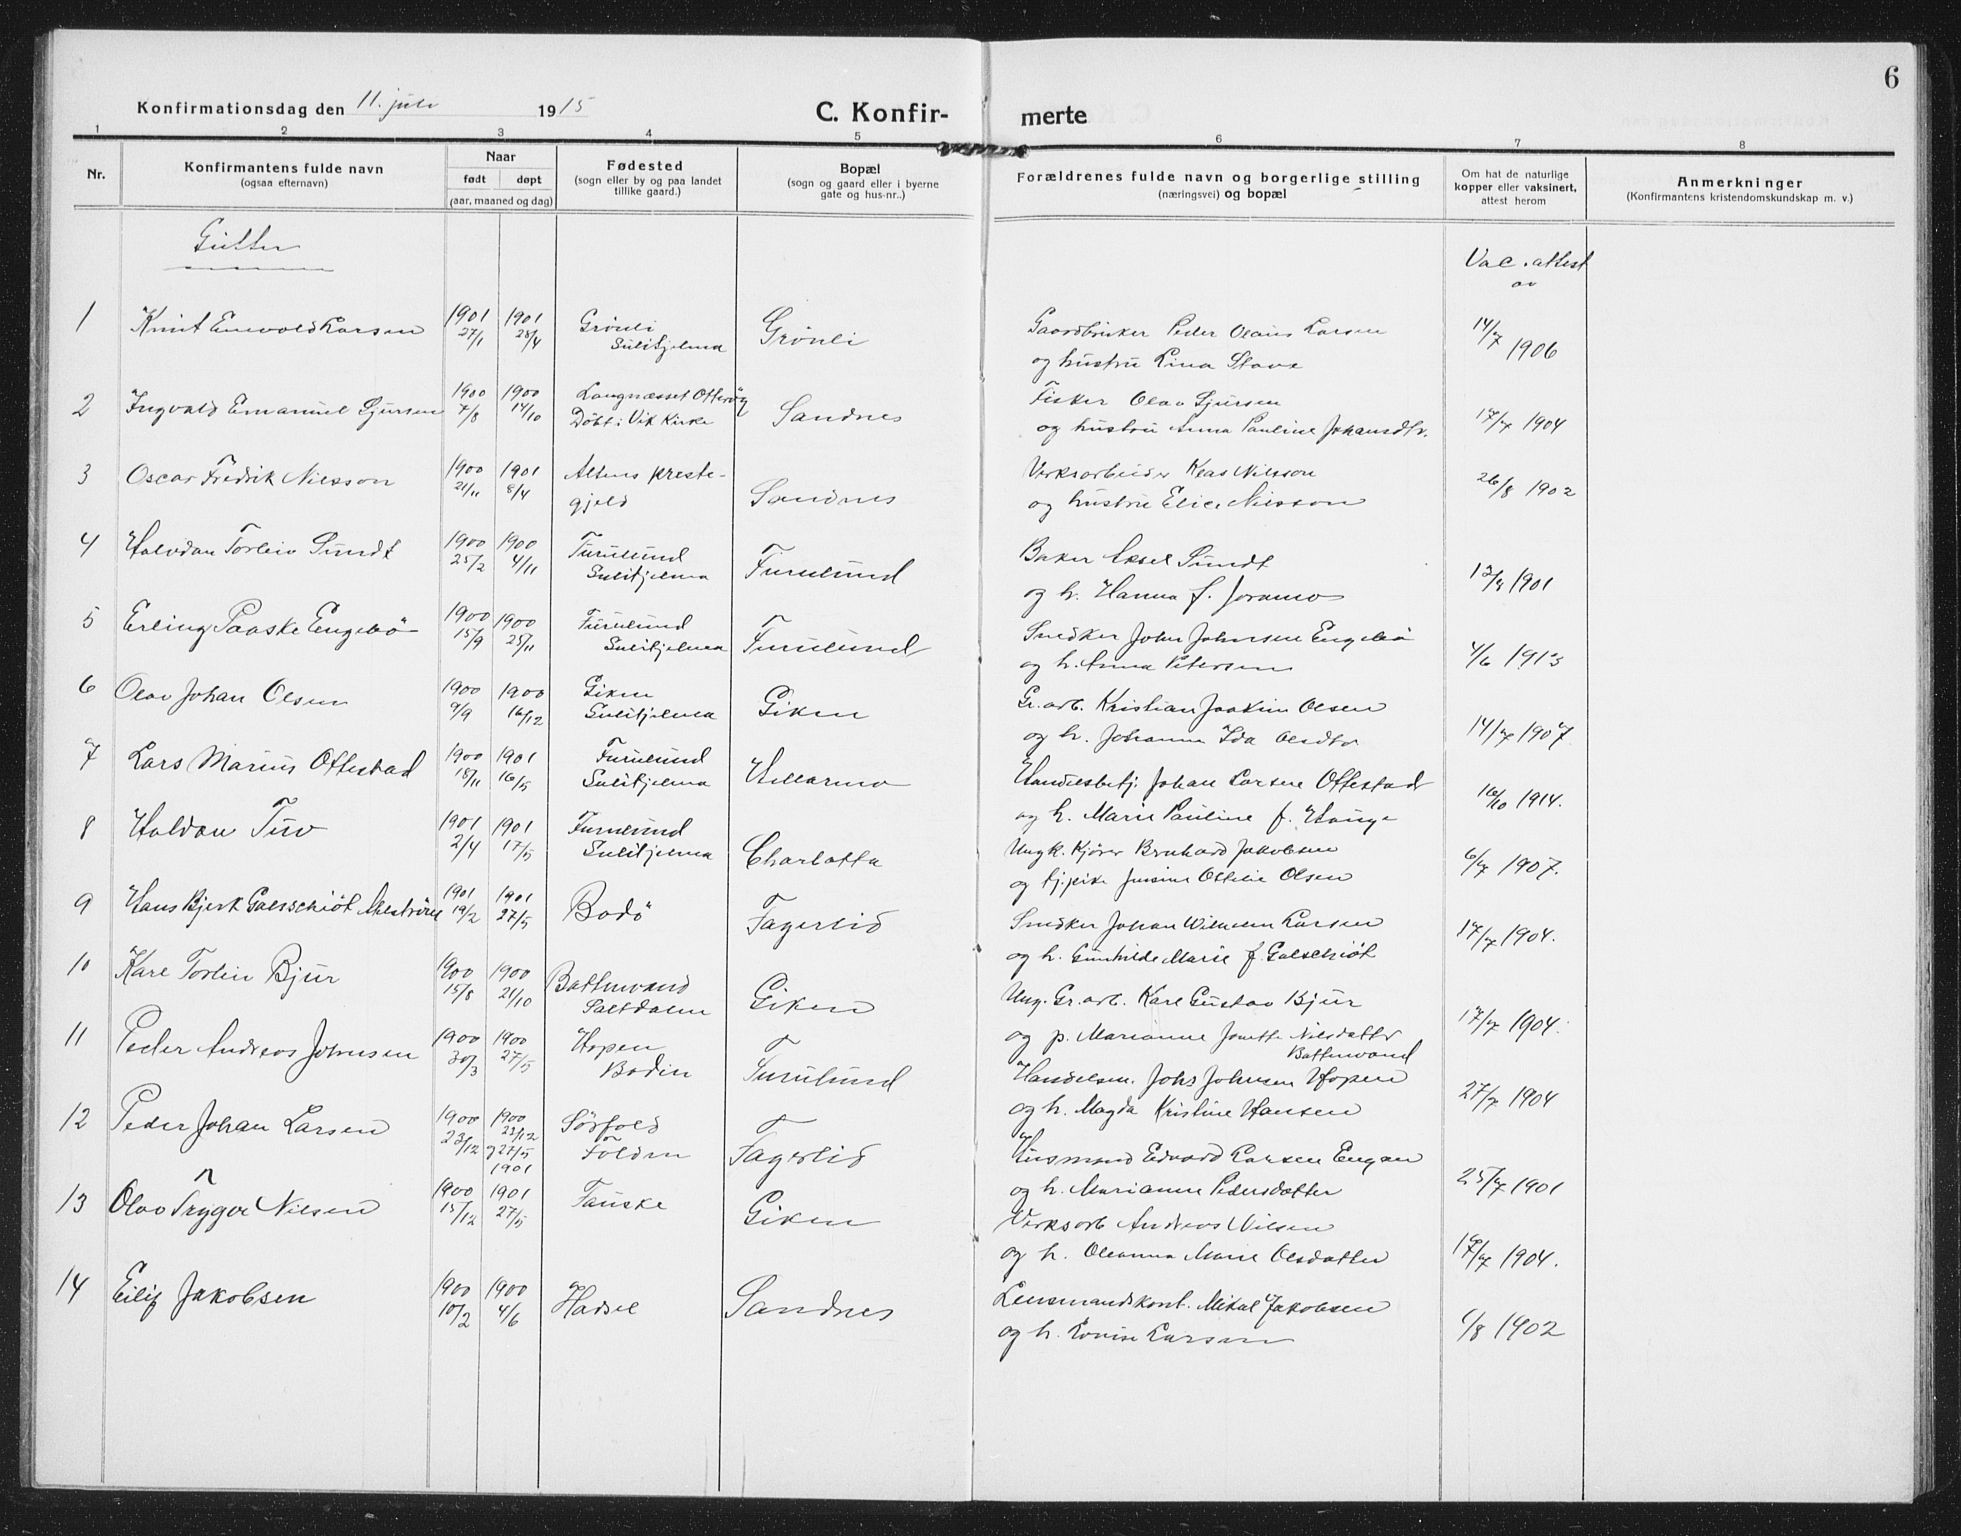 6
Konfirmationsdag den 11. juli 1915
C. Konfirmerte
1 2 3 4 5 6 7 8
Nr.
Konfirmantens fulde navn
(ogsaa efternavn)
Naar
født døpt
(aar, maaned og dag)
Fødested
(sogn eller by og paa landet
tillike gaard.)
Bopæl
(sogn og gaard eller i byerne
gate og hus-nr..)
Forældrenes fulde navn og borgerlige stilling
(næringsvei) og bopæl
Om hat de naturlige
kopper eller vaksinert,
attest herom
Anmerkninger
(Konfirmantens kristendomskundskap m. v.)
Gutter
Vac. attest
av
1 Knut Enevold Larsen 1901 27/1 1901 28/4 Grönli Sulitjelma Grönli
Gaardbruker Peder Olaus Larsen
og hustru Lina Stave
14/7 1906
2 Ingvald Emanuel Sjursen 1900 7/8 1900 14/10 Langnæsset Otteröy Döbt i Vik Kirke Sandnes
Fisker Olav Sjursen
og hustru Anna Pauline Johansdtr.
17/7 1904
3 Oscar Fredrik Nilsson 1900 21/11 1901 8/4 Altens prestegjeld Sandnes
Verksarbeider Klas Nilsson
og hustru Elise Nilsson
26/8 1902
4 Halvdan Torleiv Sundt 1900 25/2 1900 4/11 Furulund Sulitjelma Furulund
Baker Aksel Sundt
og h. Hanna f. Joramo
1901
5 Erling Paaske Engebö 1900 15/9 1900 25/11 Furulund Sulitjelma Furulund
Snedker John Johnsen Engebö
og h. Anna Petersen
4/6 1913
6 Olav Johan Olsen 1900 9/9 1900 16/12 Giken Sulitjelma Giken
Gr.arb. Kristian Joakim Olsen
og h. Johanna Ida Olsdtr
14/7 1907
7 Lars Marius Ottestad 1900 18/11 1901 16/5 Furulund Sulitjelma Hellarmo
Handelsbetj. Johan Larsen Ottestad
og h. Marie Pauline f. Hauge
16/10 1914.
8 Haldan Tuv 1901 2/4 1901 17/5 Furulund Sulitjelma Charlotta
Ungk. Kjører Bernhard Jakobsen
og tj.pike Jensine Ottelie Olsen
6/7 1907.
9 Hans Bjerk Galschiøt 1901 19/2 1901 27/5 Bodö Fagerlid
Snedker Johan Wilhelm Larsen
og h. Gunhilde Marie f. Galschiøt
17/7 1904.
10 Karl Torlein Bjur 1900 15/8 1900 21/10 Botnvand Saltdalen Giken
Ung. Gr.arb. Karl Gustav Bjur
og p. Marianne Jonette Nilsdatter
Botnvand
17/7 1904.
11 Peder Andreas Johnsen 1900 30/3 1900 27/5 Hopen Bodin Furulund
Handelsm. Johs Johnsen Hopen
og h. Magda Kristine Hansen
27/7 1904
12 Peder Johan Larsen 1900 22/12 1900 23/12 og 27/5 1901 Sörfold Folden Fagerlid
Husmand Edvard Larsen Engan
og h. Marianne Pedersdatter
25/7 1901
13 Olav Trygve Nilsen 1900 15/12 1901 27/5 Fauske Giken
Verksarb Andreas Nilsen
og h. Oleanna Marie Olsdatter
17/7 1904.
14 Eilif Jakobsen 1900 10/2 1900 4/6 Hadsel Sandnes
Lensmandskont. Mikal Jakobsen
og h. Lovise Larsen
1/8 1902